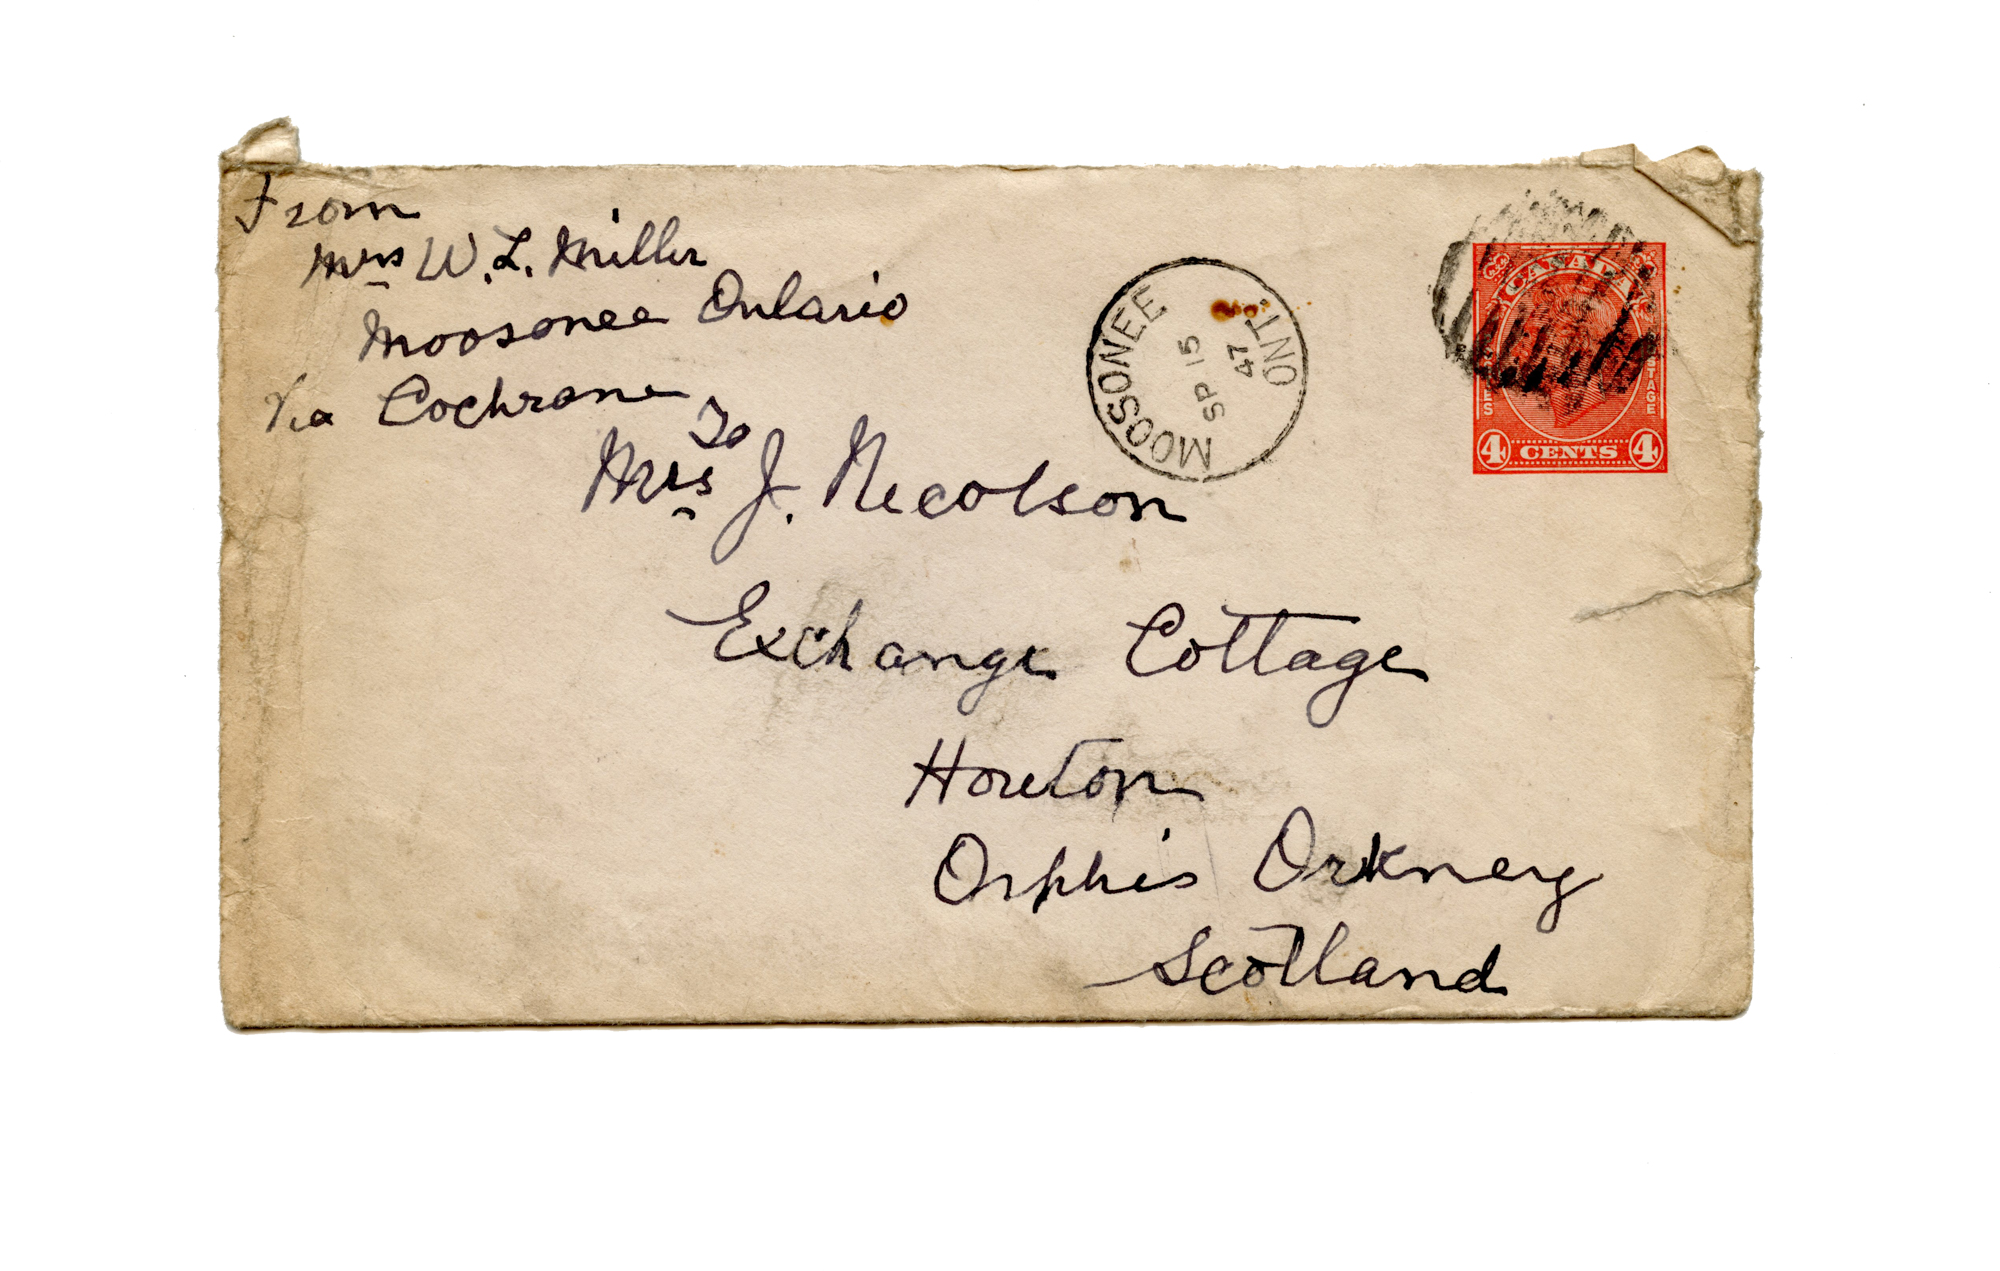 From
Mrs W. L. Miller
Moosonee Ontario
Via Cochrane
To
Mrs J. Nicolson
Exchange Cottage
Houton
Orphis Orkney
Scotland
MOOSONEE
SP 15
47
ONT
CANADA
POSTAGE
4 CENTS 4